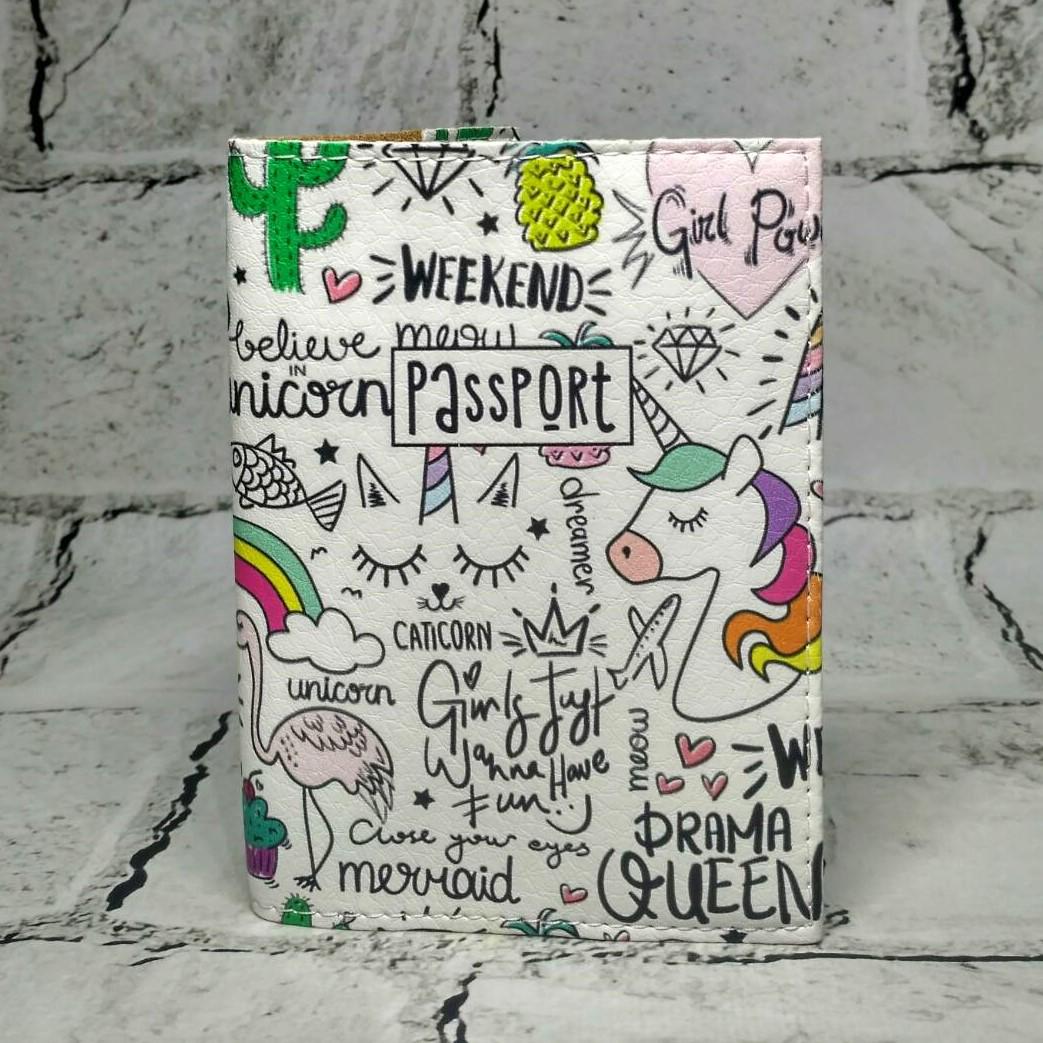 Girl Pow
WEEKEND
believe
IN
unicorn
meow
PASSPORT
dreamer
CATICORN
unicorn
Girls Just
Wanna Have
Fun!
meow
WE
Close your eyes
mermaid
DRAMA
QUEEN